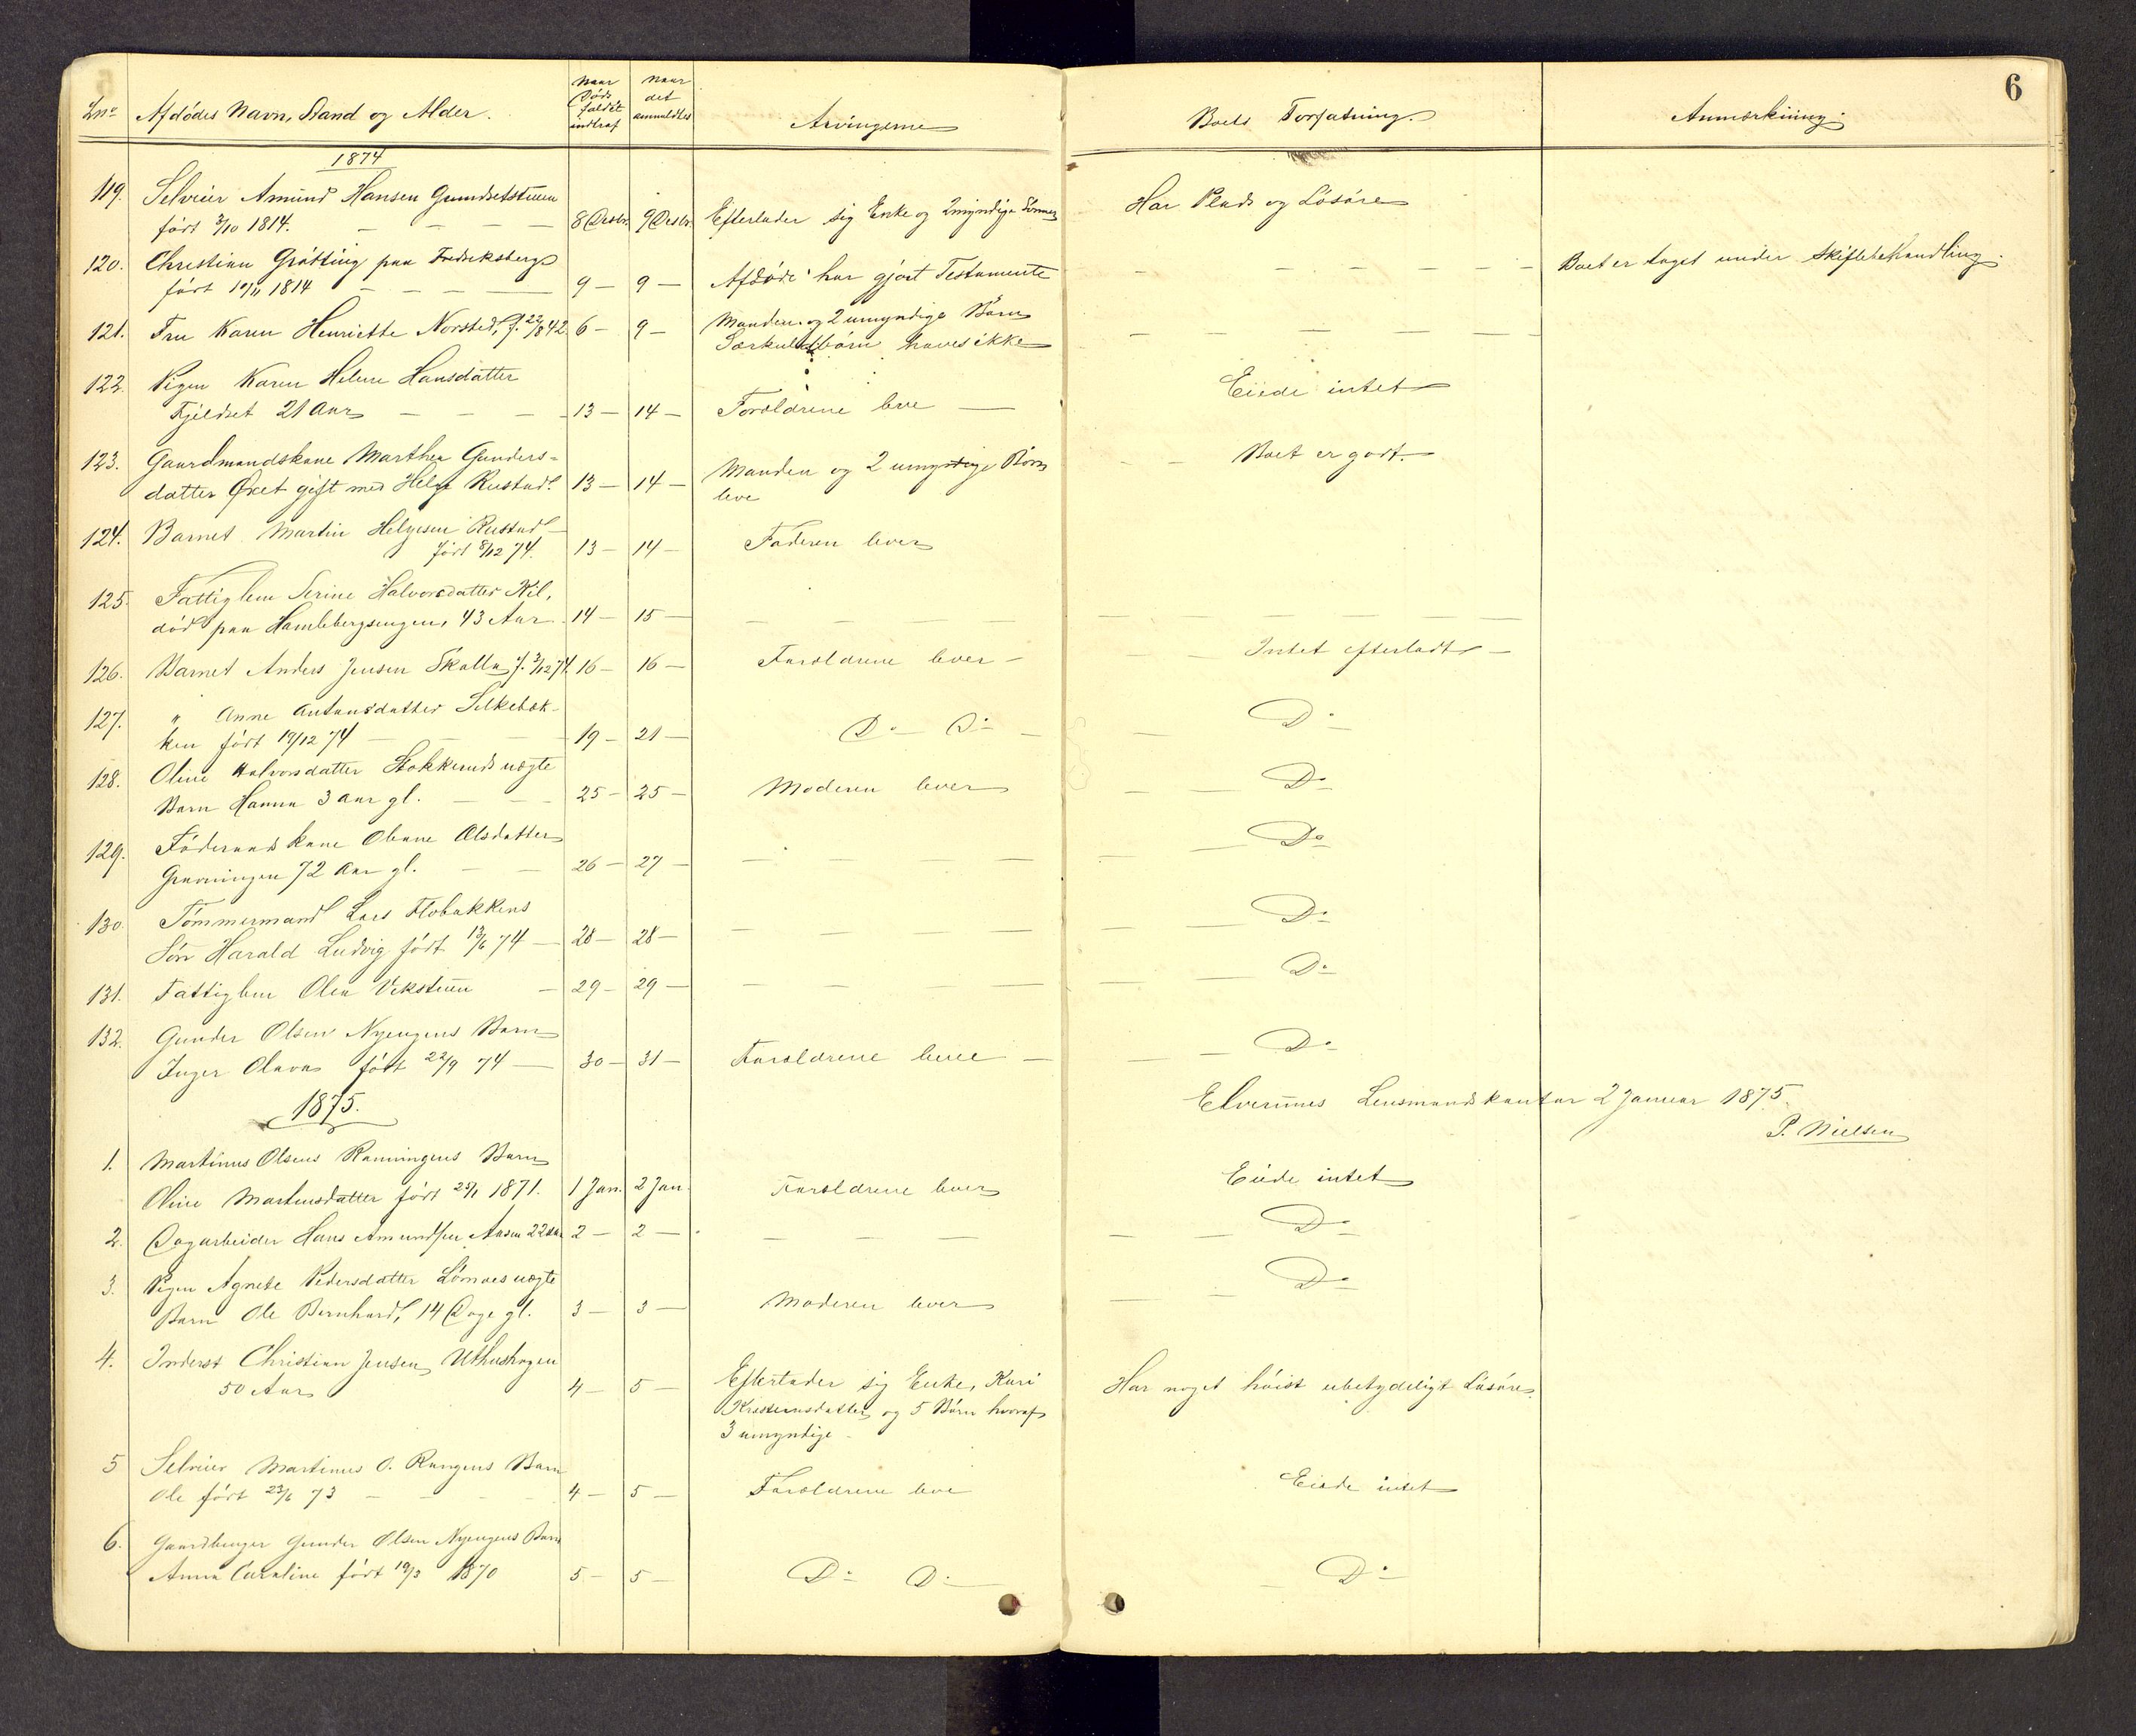 6
Lno Afdødes Navn, Stand og Alder. Naar Døds faldet indtraf Naar det anmeldtes Arvingerne Boets Forfatning. Anmærkning.
1874
119. Selveier Amund Hansen Grundsetstuen
født 3/10 1814. — — — 8 Decbr. 9 Decbr. Efterlader sig Enke og 2 myndige Sønner Har Plads og Løsøre
120. Christian Grøtting paa Fredriksberg
født 10/11 1814 — — — 9 — 9 — Afdøde har gjort Testamente — — — — — Boet er taget under Skiftebehandling.
121. Fru Karen Henriette Norsted, f. 22/8 42 6 — 9 — Manden og 2 umyndige Børn
Særkuldbørn haves ikke — — — — —
122. Pigen Karen Helene Hansdatter
Fjeldset 21 Aar — — — 13 — 14 — Forældrene leve — Eiede intet
123. Gaardmandskone Marthea Gunders-
datter Øxet gift med Helge Rustad. 13 — 14 — Manden og 2 umyndige Børn
leve — — Boet er godt.
124. Barnet Martin Helgesen Rustad —
født 8/12 74. 13 — 14 — Faderen lever
125. Fattiglem Serine Halvorsdatter Kil,
død paa Hamlebergsengen, 43 Aar 14 — 15 — — — — — — — —
126. Barnet Anders Jensen Skalla f. 3/12 74. 16 — 16 — Forældrene lever — — — Intet efterladt —
127. " Anne Antonsdatter Silkebæk-
ken født 19/12 74 — — 19 — 21 — Do Do — Do
128. Oline Halvorsdatter Stokkerud's uægte
Barn Hanna 3 aar gl. — — 25 — 25 — Moderen lever — — Do
129. Føderaads kone Oleane Olsdatter
Grønningen 72 Aar gl. — — 26 — 27 — — — — — — Do
130. Tømmermand Lars Flobakkens
Søn Harald Ludvig født 13/6 74 — 28 — 28 — — — — — — — Do
131. Fattiglem Olea Vekstuen — 29 — 29 — — — — — — Do
132. Gunder Olsen Nyengens Barn
Inger Olava født 22/9 74 — 30 — 31 — Forældrene leve — — — Do
Elverums Lensmandskontor 2 Januar 1875.
P. Nielsen
1875.
1. Martinus Olsens Ranningens Barn
Oline Martinusdatter født 25/1 1871. 1 Jan. 2 Jan. Forældrene lever Eiede intet
2. Dagarbeider Hans Amundsen Aasen 22 aar 2 — 2 — — — — — — Do
3. Pigen Agnete Pedersdatter Lømoes uægte
Barn Ole Bernhard, 14 Dage gl. 3 — 3 — Moderen lever — — Do
4. Inderst Christian Jensen Uthushagen
50 Aar 4 — 5 — Efterlader sig Enke, Kari
Kristensdatter og 5 Børn hvoraf
3 umyndige — Har noget høist ubetydeligt Løsøre.
5 Selveier Martinus O. Rangens Barn
Ole født 23/6 73 — — — 4 — 5 — Forældrene leve Eiede intet
6. Gaardbruger Gunder Olsen Nyengens Barn
Anna Caroline født 19/3 1870 5 — 5 — Do Do — — Do